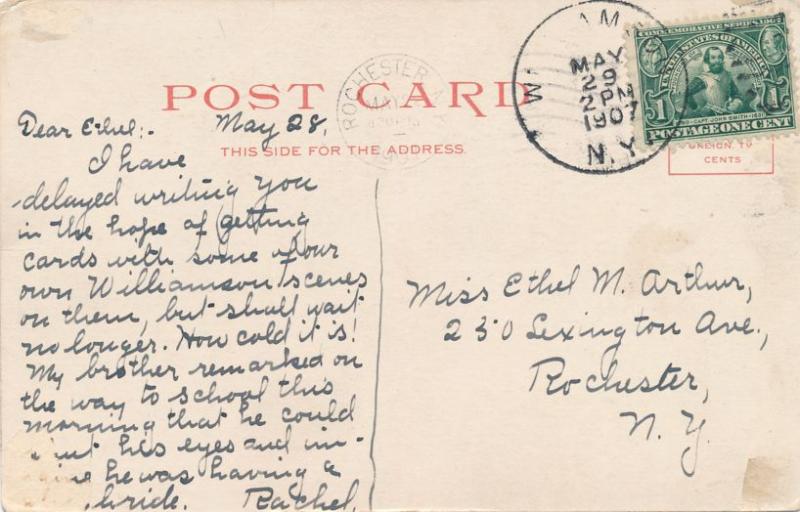 POST CARD
THIS SIDE FOR THE ADDRESS.
ROCHESTER, N.Y.
MAY
MAY
29
2 PM
1907
N.Y.
COMMEMORATIVE SERIES 1907
UNITED STATES OF AMERICA
1 1
CAPT. JOHN SMITH
POSTAGE ONE CENT
CENTS
Dear Ethel:- May 28,
I have
delayed writing you
in the hope of getting
cards with some of our
own Williamson scenes
on them, but shall wait
no longer. How cold it is!
My brother remarked on
the way to school this
morning that he could
his eyes and im-
he was having a
bride. Rachel.
Miss Ethel M. Arthur,
230 Lexington Ave.,
Rochester,
N.Y.